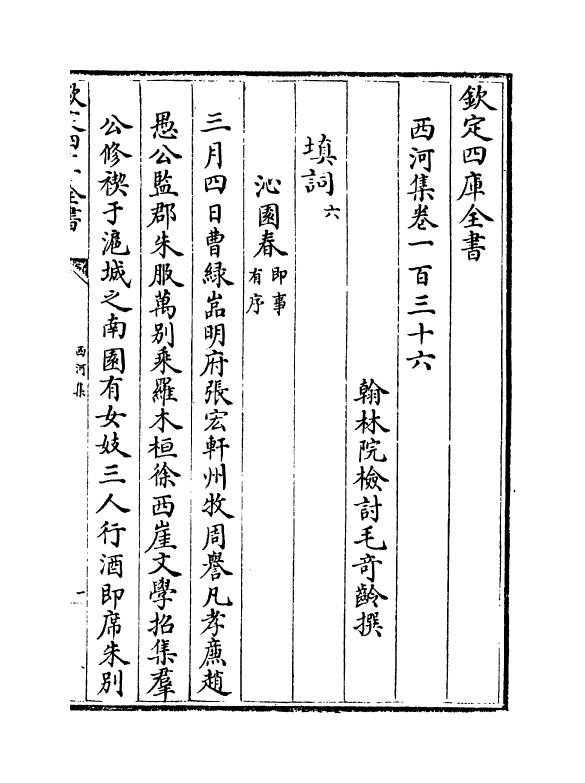 欽定四庫全書
西河集卷一百三十六
翰林院檢討毛奇齡撰
填詞六
沁園春即事有序
三月四日曹緑嵓明府張宏軒州牧周譽凡孝廉趙
愚公監郡朱服萬别乘羅木桓徐西崖文學招集羣
公修禊于滬城之南園有女妓三人行酒即席朱别
欽定四庫全書
西河集
一